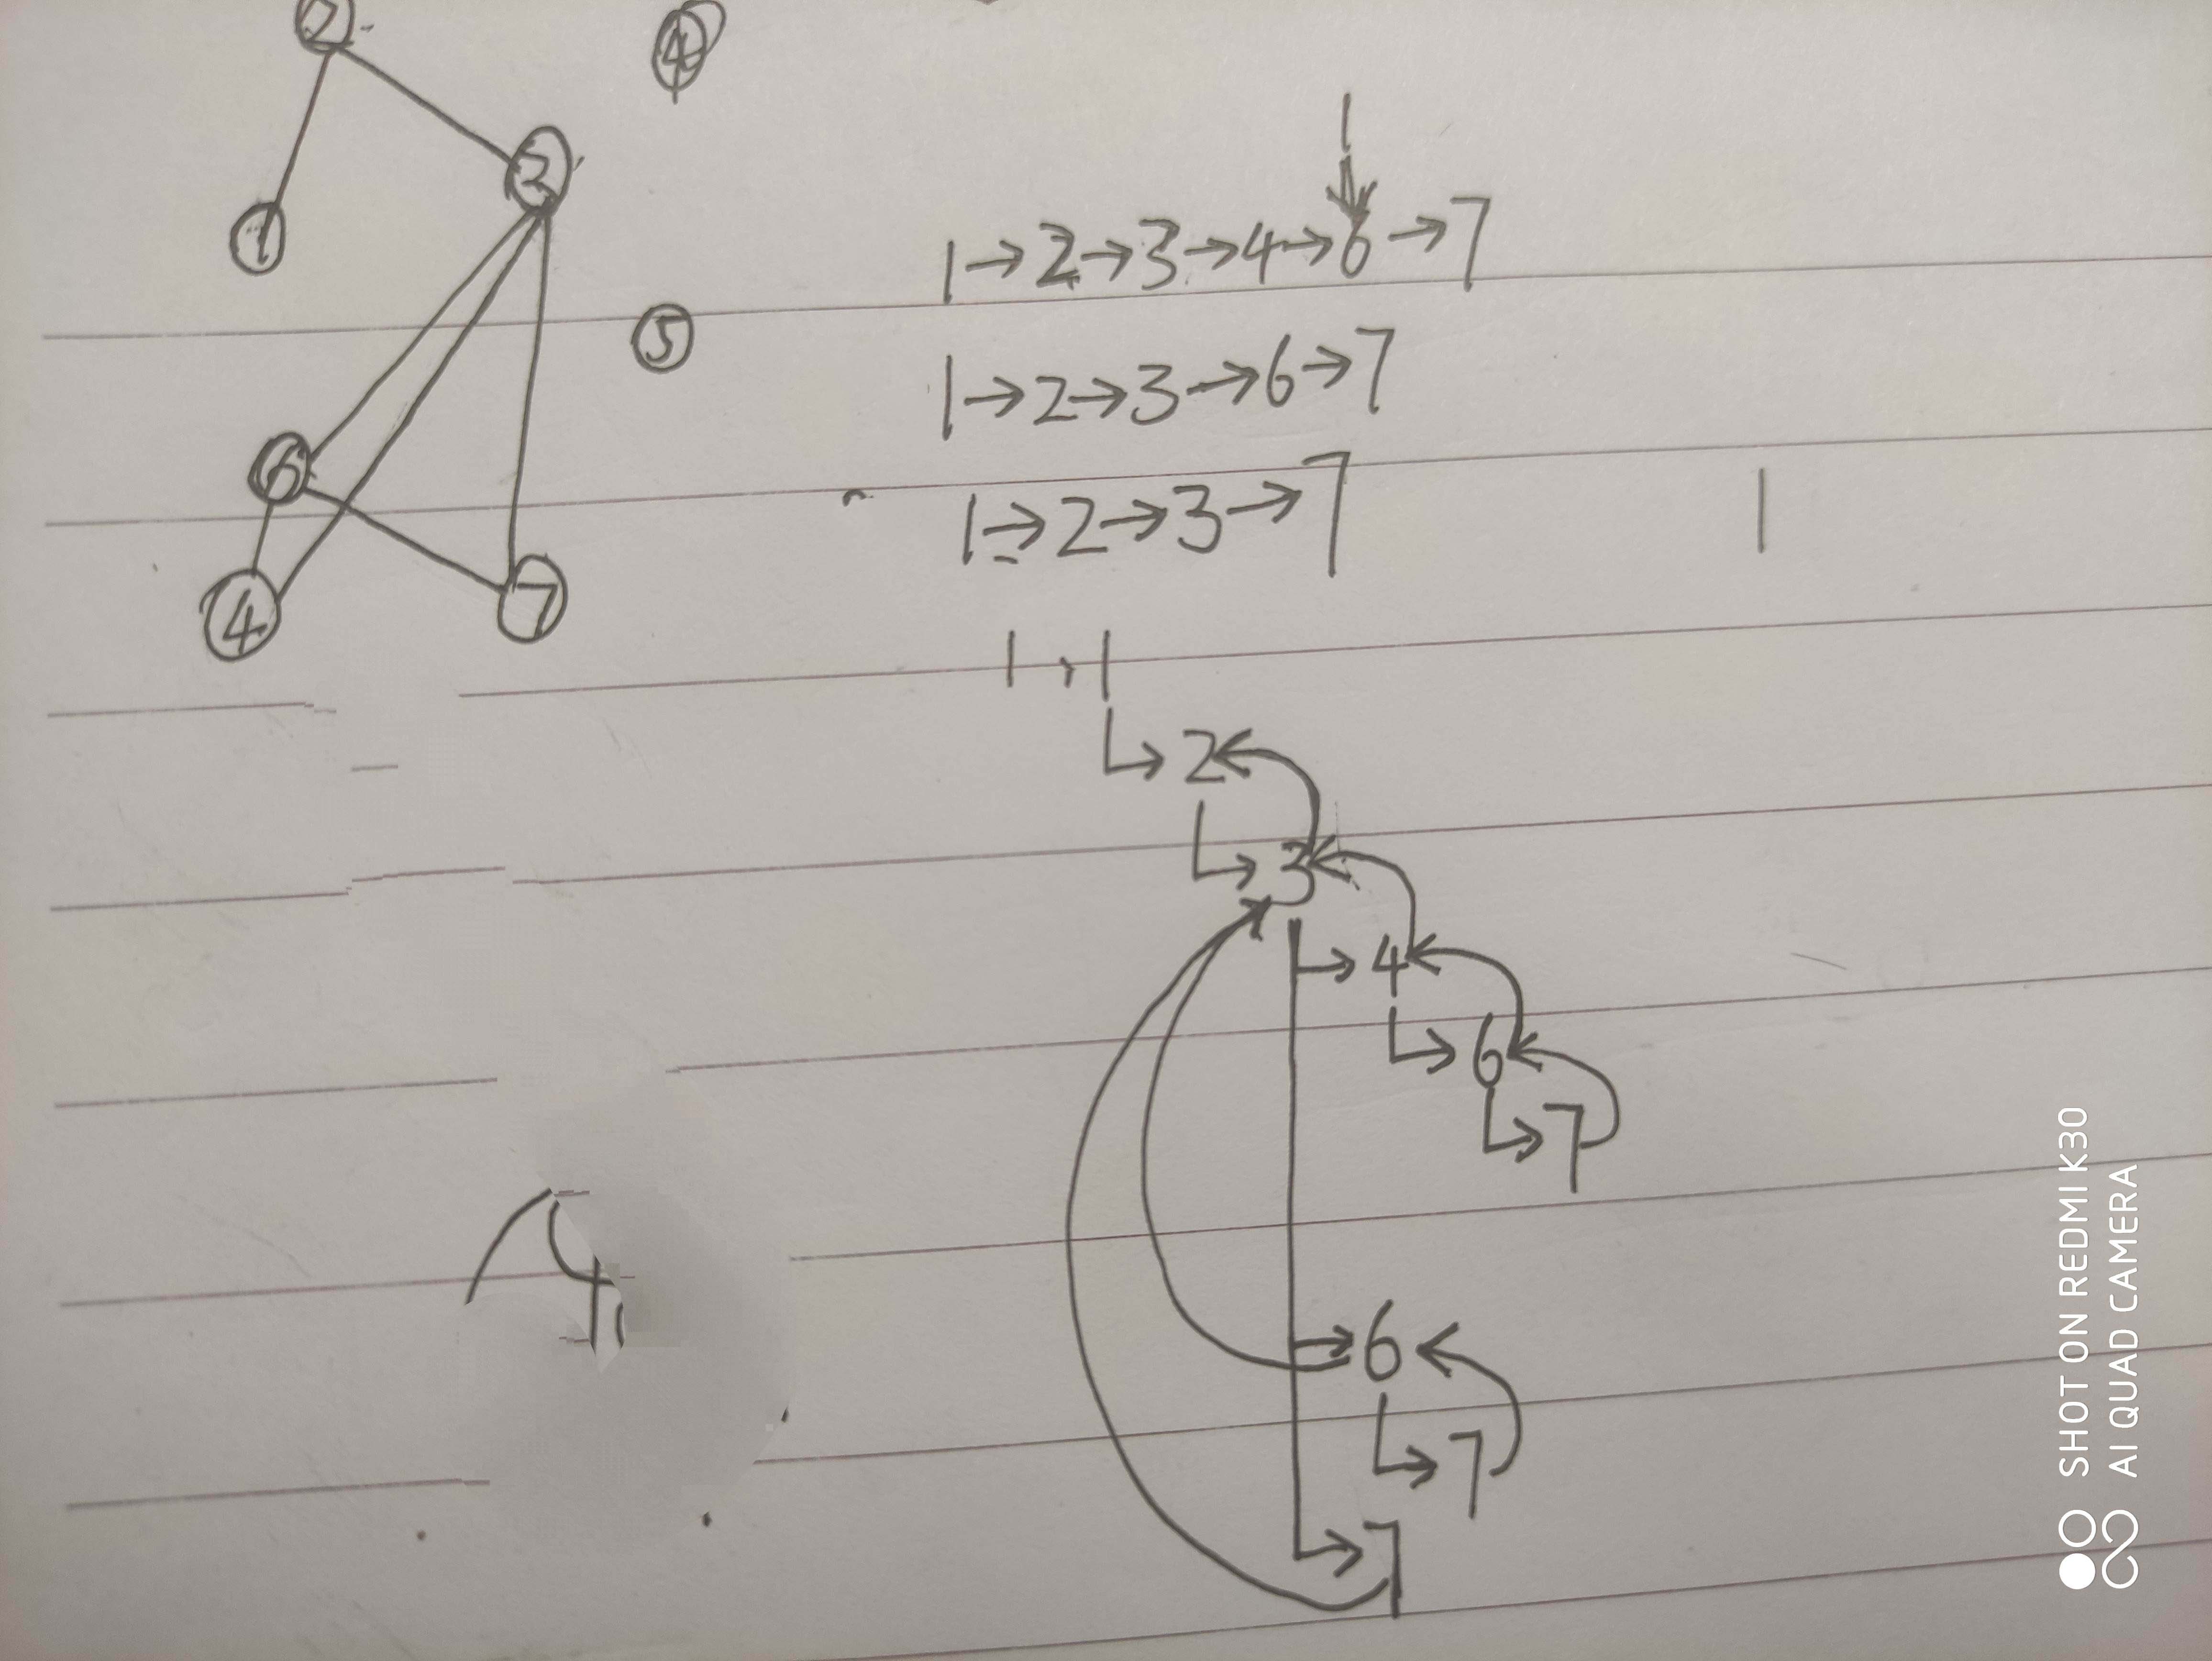 2
4
3
1
1→2→3→4→6→7
5
1→2→3→6→7
6
1→2→3→7
4
7
1→1
2
3
4
6
7
6
7
7
SHOT ON REDMI K30
AI QUAD CAMERA